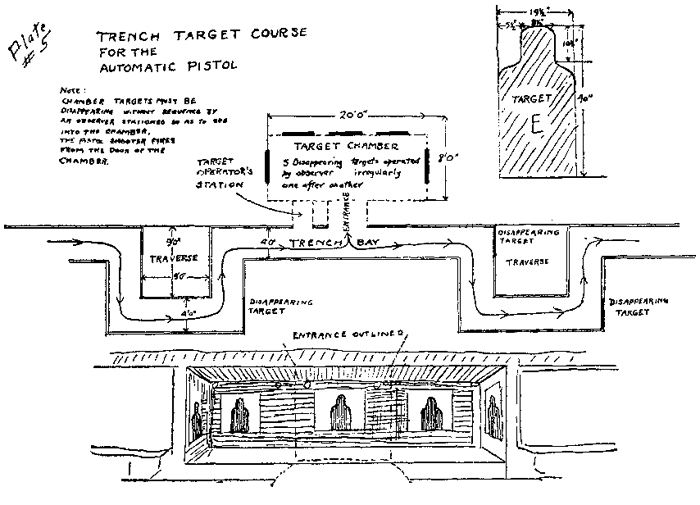 Plate
# 5
TRENCH TARGET COURSE
FOR THE
AUTOMATIC PISTOL
NOTE:
CHAMBER TARGETS MUST BE
DISAPPEARING WITHOUT SEQUENCE BY
AN OBSERVER STATIONED SO AS TO SEE
INTO THE CHAMBER.
THE PISTOL SHOOTER FIRES
FROM THE DOOR OF THE
CHAMBER.
19½"
5½"
8½"
10½"
40"
TARGET
E
20'0"
8'0"
TARGET CHAMBER
5 Disappearing targets operated
by observer irregularly
one after another
TARGET
OPERATOR'S
STATION
ENTRANCE
TRENCH BAY
4'0"
9'0"
TRAVERSE
9'0"
4'0"
DISAPPEARING
TARGET
DISAPPEARING
TARGET
TRAVERSE
DISAPPEARING
TARGET
ENTRANCE OUTLINED